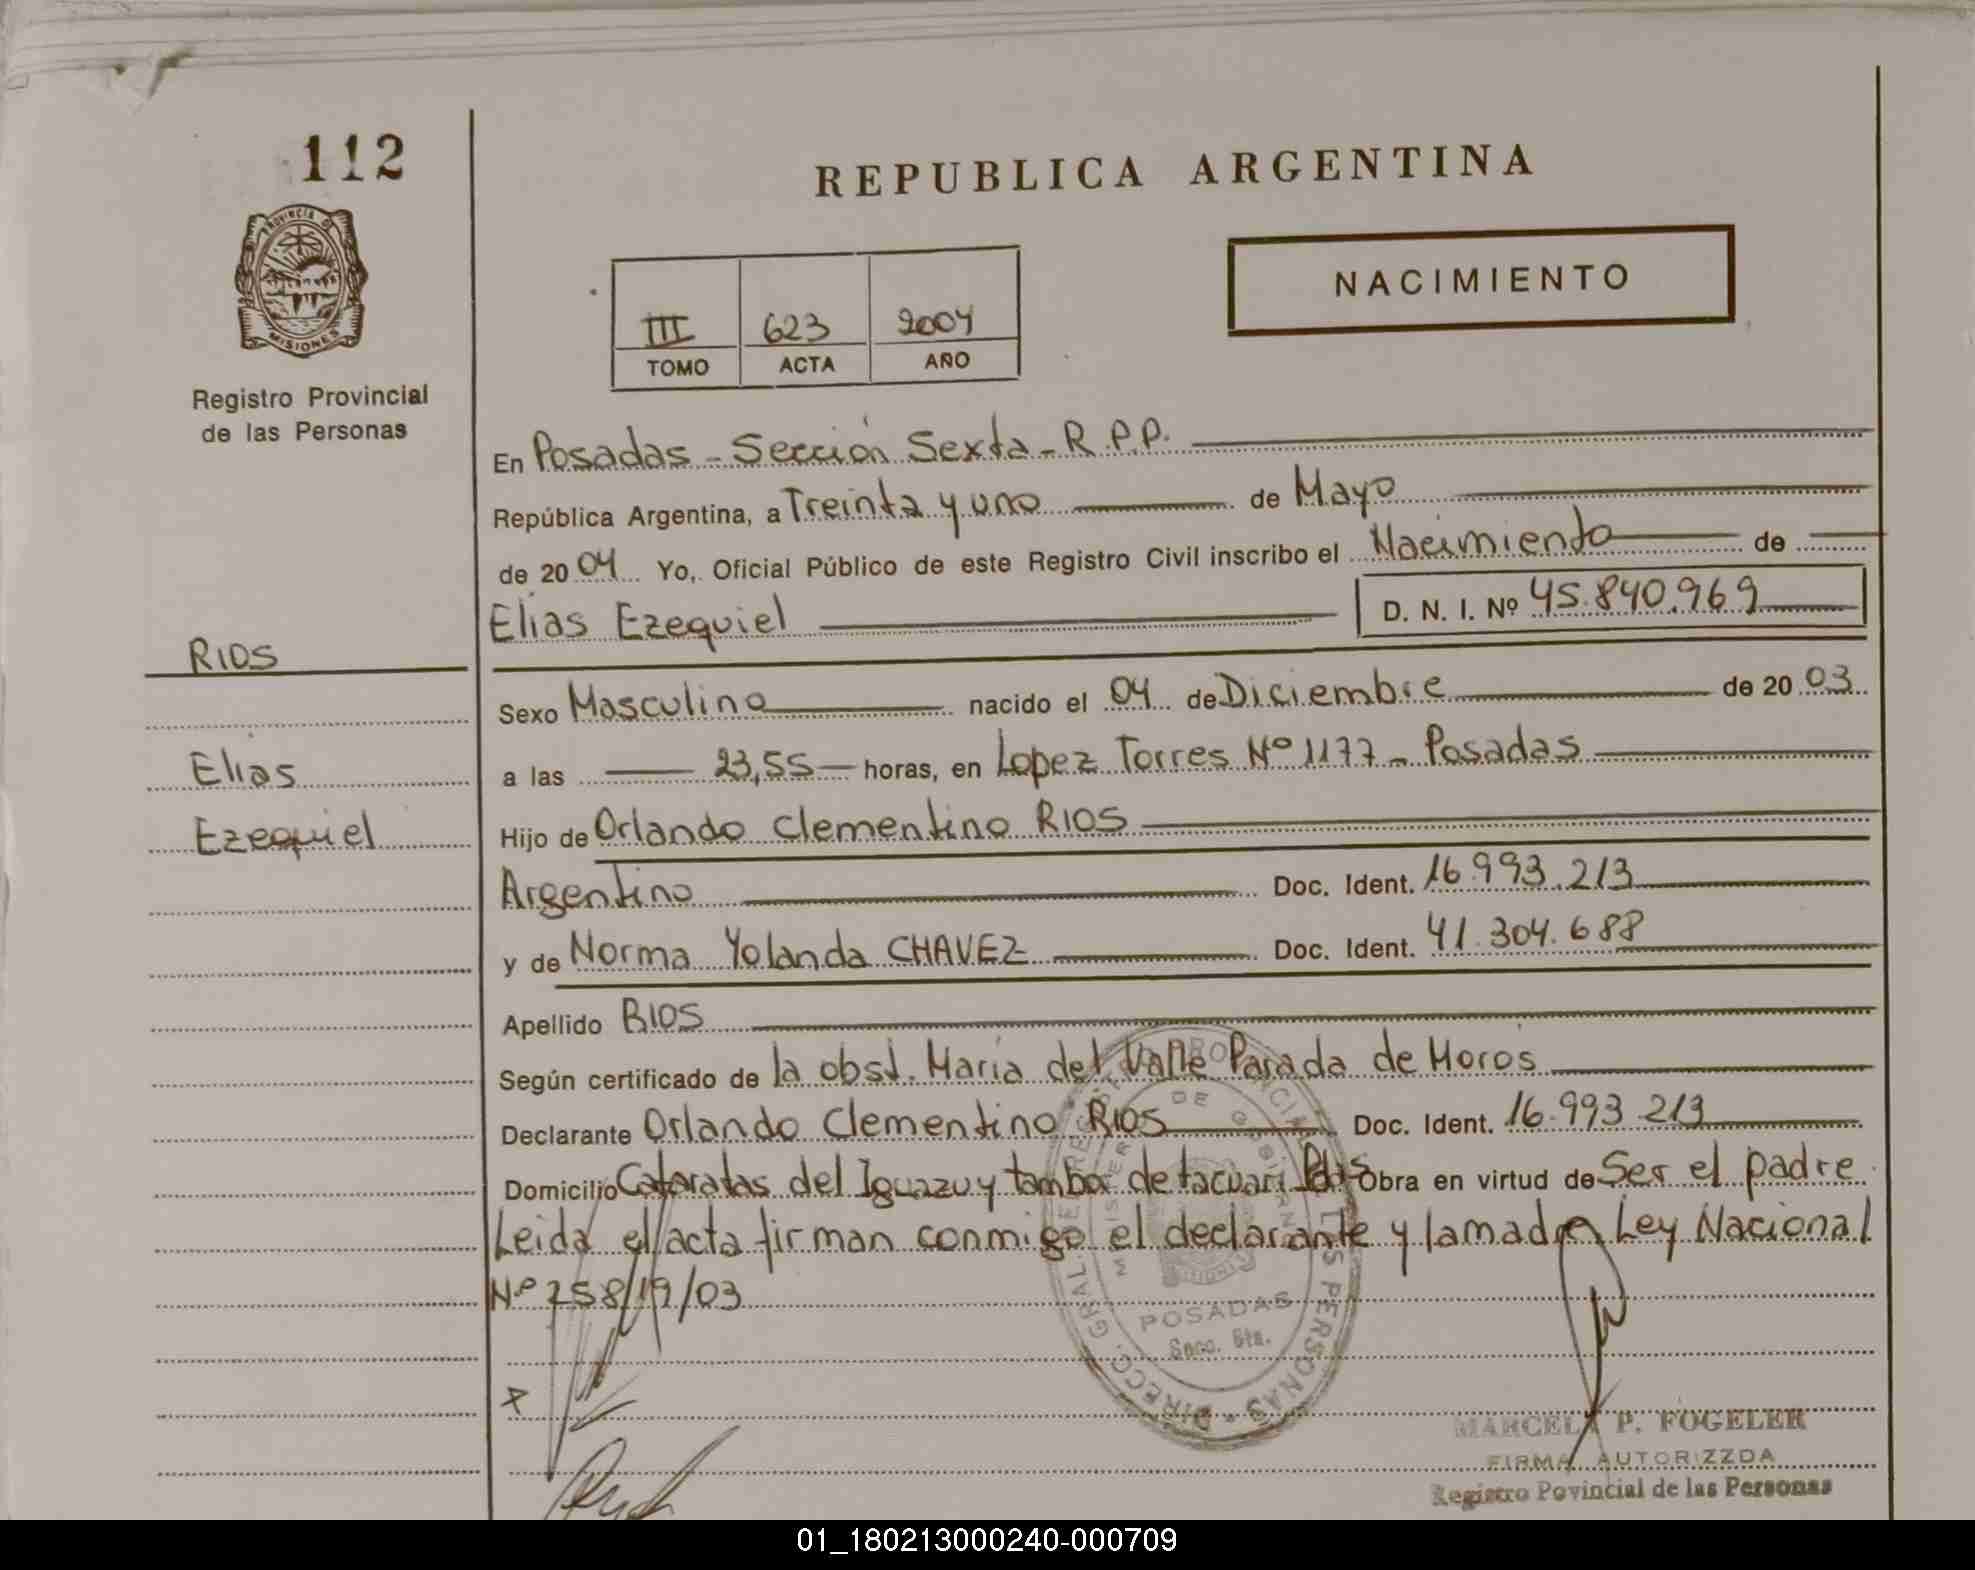 112
REPUBLICA ARGENTINA
PROVINCIA DE
MISIONES
NACIMIENTO
III 623 2004
TOMO ACTA AÑO
Registro Provincial
de las Personas
En Posadas - Sección Sexta - R.P.P.
República Argentina, a Treinta y uno de Mayo
de 2004 Yo, Oficial Público de este Registro Civil inscribo el Nacimiento de
Elias Ezequiel D. N. I. Nº 45.840.969
RIOS
Sexo Masculino nacido el 04 de Diciembre de 2003
Elias
a las 23,55 horas, en Lopez Torres Nº 1177 - Posadas
Ezequiel
Hijo de Orlando Clementino RIOS
Argentino Doc. Ident. 16.993.213
y de Norma Yolanda CHAVEZ Doc. Ident. 41.304.688
Apellido RIOS
Según certificado de la obst. Maria del Valle Parada de Moros
Declarante Orlando Clementino RIOS Doc. Ident. 16.993.213
Domicilio Cataratas del Iguazu y tambor de tacuari Pdas Obra en virtud de Ser el padre
Leida el acta firman conmigo el declarante y la madre Ley Nacional
Nº 258/19/03
POSADAS
Secc. 6ta.
MARCELA P. FOGELER
FIRMA AUTORIZZDA
Registro Povincial de las Personas
01_180213000240-000709